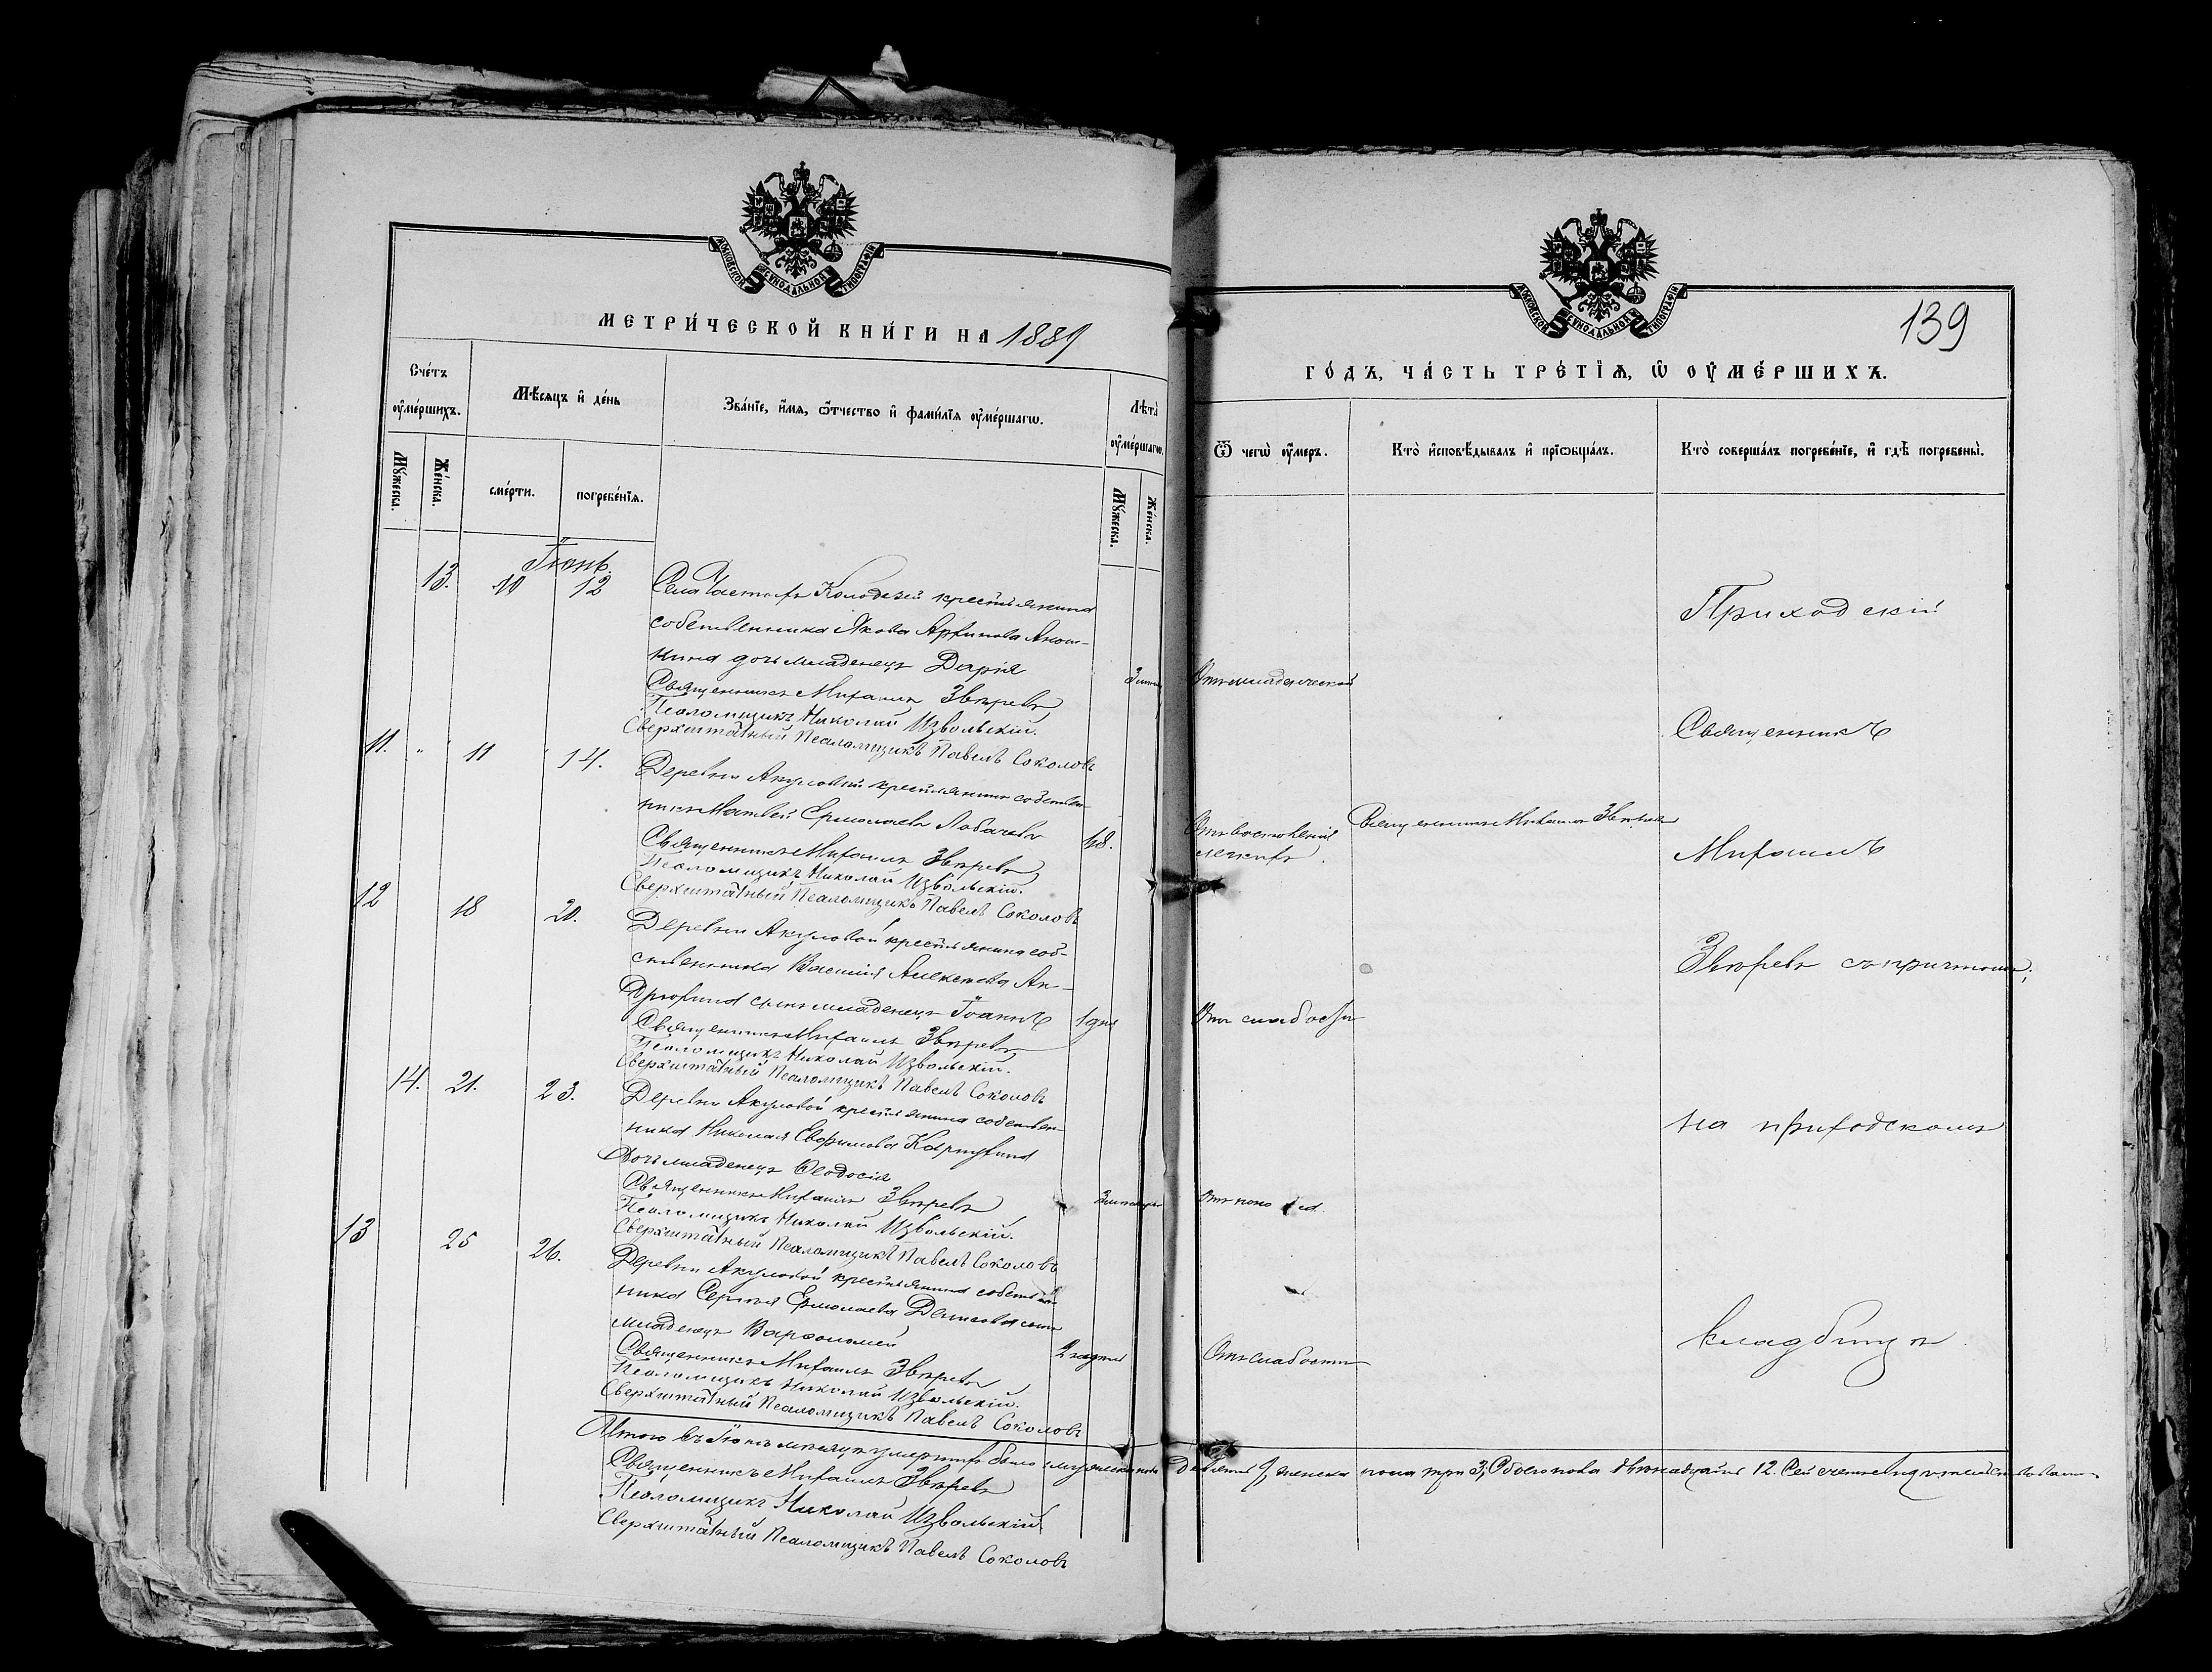 МОСКОВСКОЙ СѴНОДАЛЬНОЙ ТИПОГРАФІИ
МЕТРИ́ЧЕСКОЙ КНИ́ГИ НА 1889
Сче́тъ ᲂу҆ме́ршихъ.
Мꙋ́жеска.
Же́нска.
Мѣ́сяцъ и҆ де́нь
сме́рти.
погребе́нїѧ.
Зва́нїе, и҆́мѧ, ѻ҆́тчество и҆ фамі́лїѧ ᲂу҆ме́ршагѡ.
Лѣ́та ᲂу҆ме́ршагѡ.
Мꙋ́жеска.
Же́нска.
Іюнь.
13. 10 12 Села Частыхъ Колодезей крестьянина
собственника Якова Архипова Анош-
кина дочь младенецъ Дарія
Священникъ Михаилъ Звѣревъ
Псаломщикъ Николай Извольскій.
Сверхштатный Псаломщикъ Павелъ Соколовъ
11. " 11 14. Деревни Акуловой крестьянинъ собствен-
никъ Матвей Ермолаевъ Лобачевъ 48.
Священникъ Михаилъ Звѣревъ
Псаломщикъ Николай Извольскій.
Сверхштатный Псаломщикъ Павелъ Соколовъ
12 18 20. Деревни Акуловой крестьянина соб-
ственника Василія Алексѣева Ан-
дрюхина сынъ младенецъ Іоаннъ 1 дня
Священникъ Михаилъ Звѣревъ
Псаломщикъ Николай Извольскій.
Сверхштатный Псаломщикъ Павелъ Соколовъ
14. 21. 23. Деревни Акуловой крестьянина собствен-
ника Николая Евфимова Карпухина
дочь младенецъ Ѳеодосія
Священникъ Михаилъ Звѣревъ
Псаломщикъ Николай Извольскій.
Сверхштатный Псаломщикъ Павелъ Соколовъ
13 25 26. Деревни Акуловой крестьянина собствен-
ника Сергѣя Ермолаева Денисова сынъ
младенецъ Варѳоломей 2 недѣли
Священникъ Михаилъ Звѣревъ
Псаломщикъ Николай Извольскій.
Сверхштатный Псаломщикъ Павелъ Соколовъ
Итого въ Іюнѣ мѣсяцѣ умершихъ было мужеска пола
Священникъ Михаилъ Звѣревъ
Псаломщикъ Николай Извольскій
Сверхштатный Псаломщикъ Павелъ Соколовъ
МОСКОВСКОЙ СѴНОДАЛЬНОЙ ТИПОГРАФІИ
139
ГО́ДЪ, ЧА́СТЬ ТРЕ́ТЇѦ, Ѡ҆ ОУ҆МЕ́РШИХЪ.
Ѿ чегѡ̀ ᲂу҆́меръ.
Кто̀ и҆сповѣ́дывалъ и҆ прїѡбща́лъ.
Кто̀ соверша́лъ погребе́нїе, и҆ гдѣ̀ погребены̀.
Приходскій
Отъ младенческой
Священникъ
Отъ воспаленія
легкихъ.
Священникъ Михаилъ Звѣревъ
Михаилъ
Звѣревъ съ причтомъ;
Отъ слабости
на приходскомъ
Отъ поноса
кладбищѣ
Отъ слабости
девять 9, женска пола три 3, Обоего пола двѣнадцать 12.